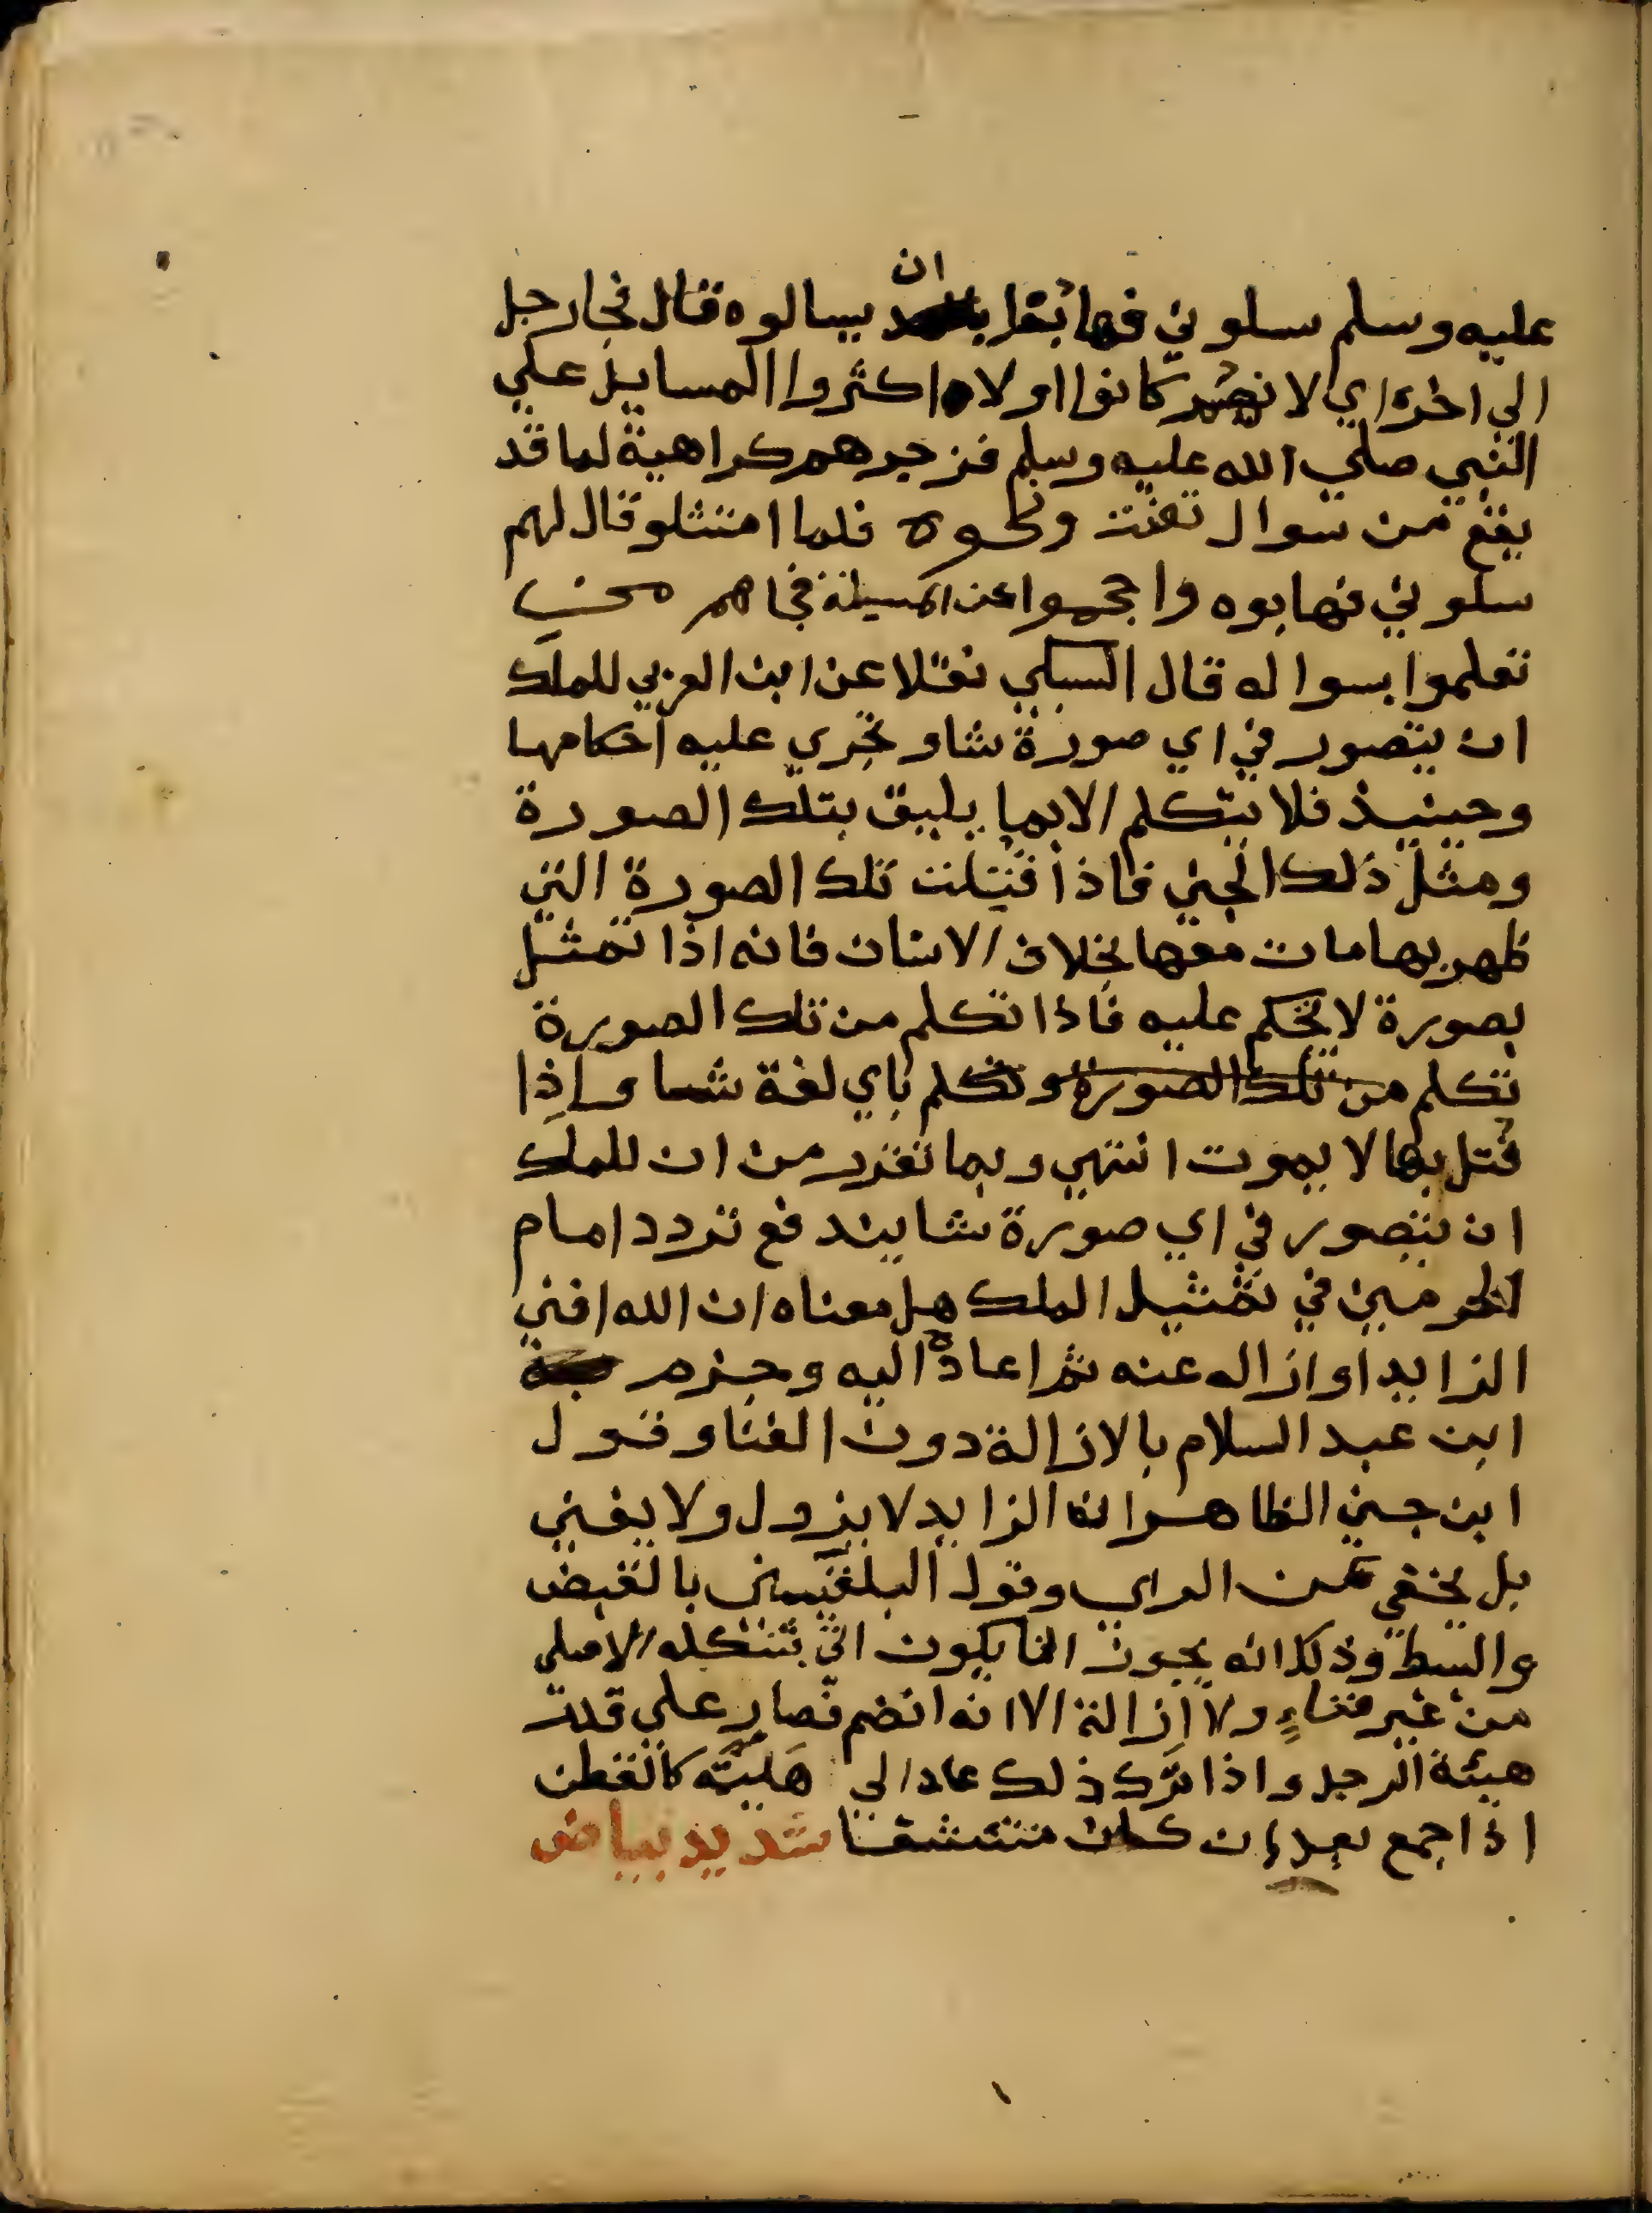 عليه وسلم سلوني فهابوا ان يسالوه قال فجا رجل
الي اخره اي لانهم كانوا اولا اكثروا المسايل علي
النبي صلي الله عليه وسلم فزجرهم كراهية لما قد
يقع من سوال تعنت ونحوه فلما امتثلو قال لهم
سلوني فهابوه واحجموا عن المسيلة فجاهم من
تعلموا بسواله قال السبكي نقلا عن ابن العربي للملك
ان يتصور في اي صورة شاو تجري عليه احكامها
وحينيذ فلا يتكلم الا بما يليق بتلك الصورة
ومثل ذلك الجني فاذا قتلت تلك الصورة التي
ظهر بها مات معها بخلاف الانسان فانه اذا تمثل
بصورة لا تحكم عليه فاذا تكلم من تلك الصورة
تكلم من تلك الصورة وتكلم باي لغة شا واذا
قتل بها لا يموت انتهي وبما تقرر من ان للملك
ان يتصور في اي صورة شا يندفع تردد امام
الحرمين في تمثيل الملك هل معناه ان الله افني
الزايد او ازاله عنه ثم اعاده اليه وجزم
ابن عبد السلام بالازالة دون الفنا وقول
ابن جني الظاهر ان الزايد لا يزول ولا يفني
بل يخفي عن الراي وقول البلقيني بالقبض
والبسط وذلك انه يجوز ان يكون اتي بشكله الاصلي
من غير فناءٍ ولا ازالة الا انه انضم فصار علي قدر
هيئة الرجل واذا ترك ذلك عاد الي هيئته كالقطن
اذا جمع بعد ان كان منتفشا شديد بياض